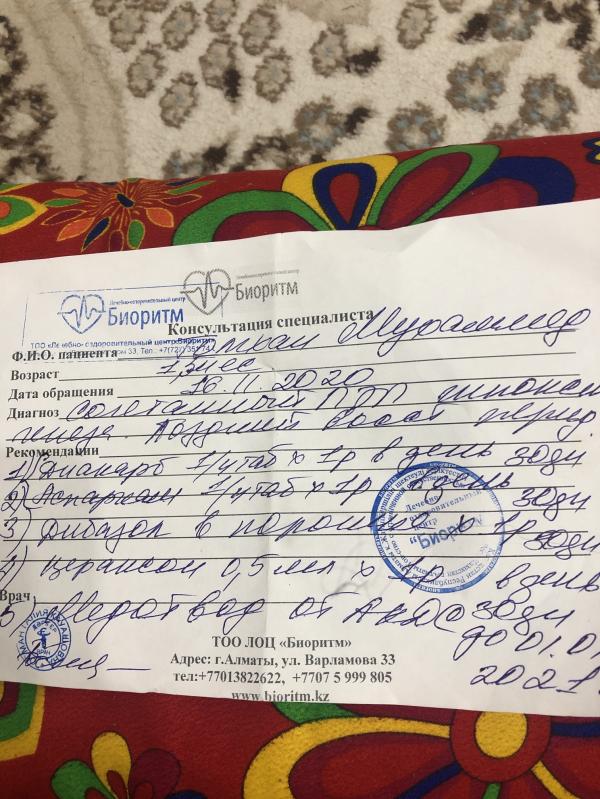 Лечебно-оздоровительный центр
Биоритм
Лечебно-оздоровительный центр
Биоритм
ТОО «Лечебно-оздоровительный центр Биоритм»
33, Тел.: +7(727)
Консультация специалиста
Ф.И.О. пациента Мухаммед
Возраст 1,3 мес
Дата обращения 16.11.2020
Диагноз Сочетанный ППП
генеза. Поздний восст период.
Рекомендации
1) Диакарб 1/4 таб х 1р в день 30дн
2) Аспаркам 1/4 таб х 1р в день 30дн
3) Дибазол в порошке 1р 30дн
4) Цераксон 0,5 мл х 1р в день 30дн
Врач
5) Медотвод от АКДС до 01.01.2021
Биоритм
ВРАЧ
ТОО ЛОЦ «Биоритм»
Адрес: г.Алматы, ул. Варламова 33
тел:+77013822622, +7707 5 999 805
www.bioritm.kz